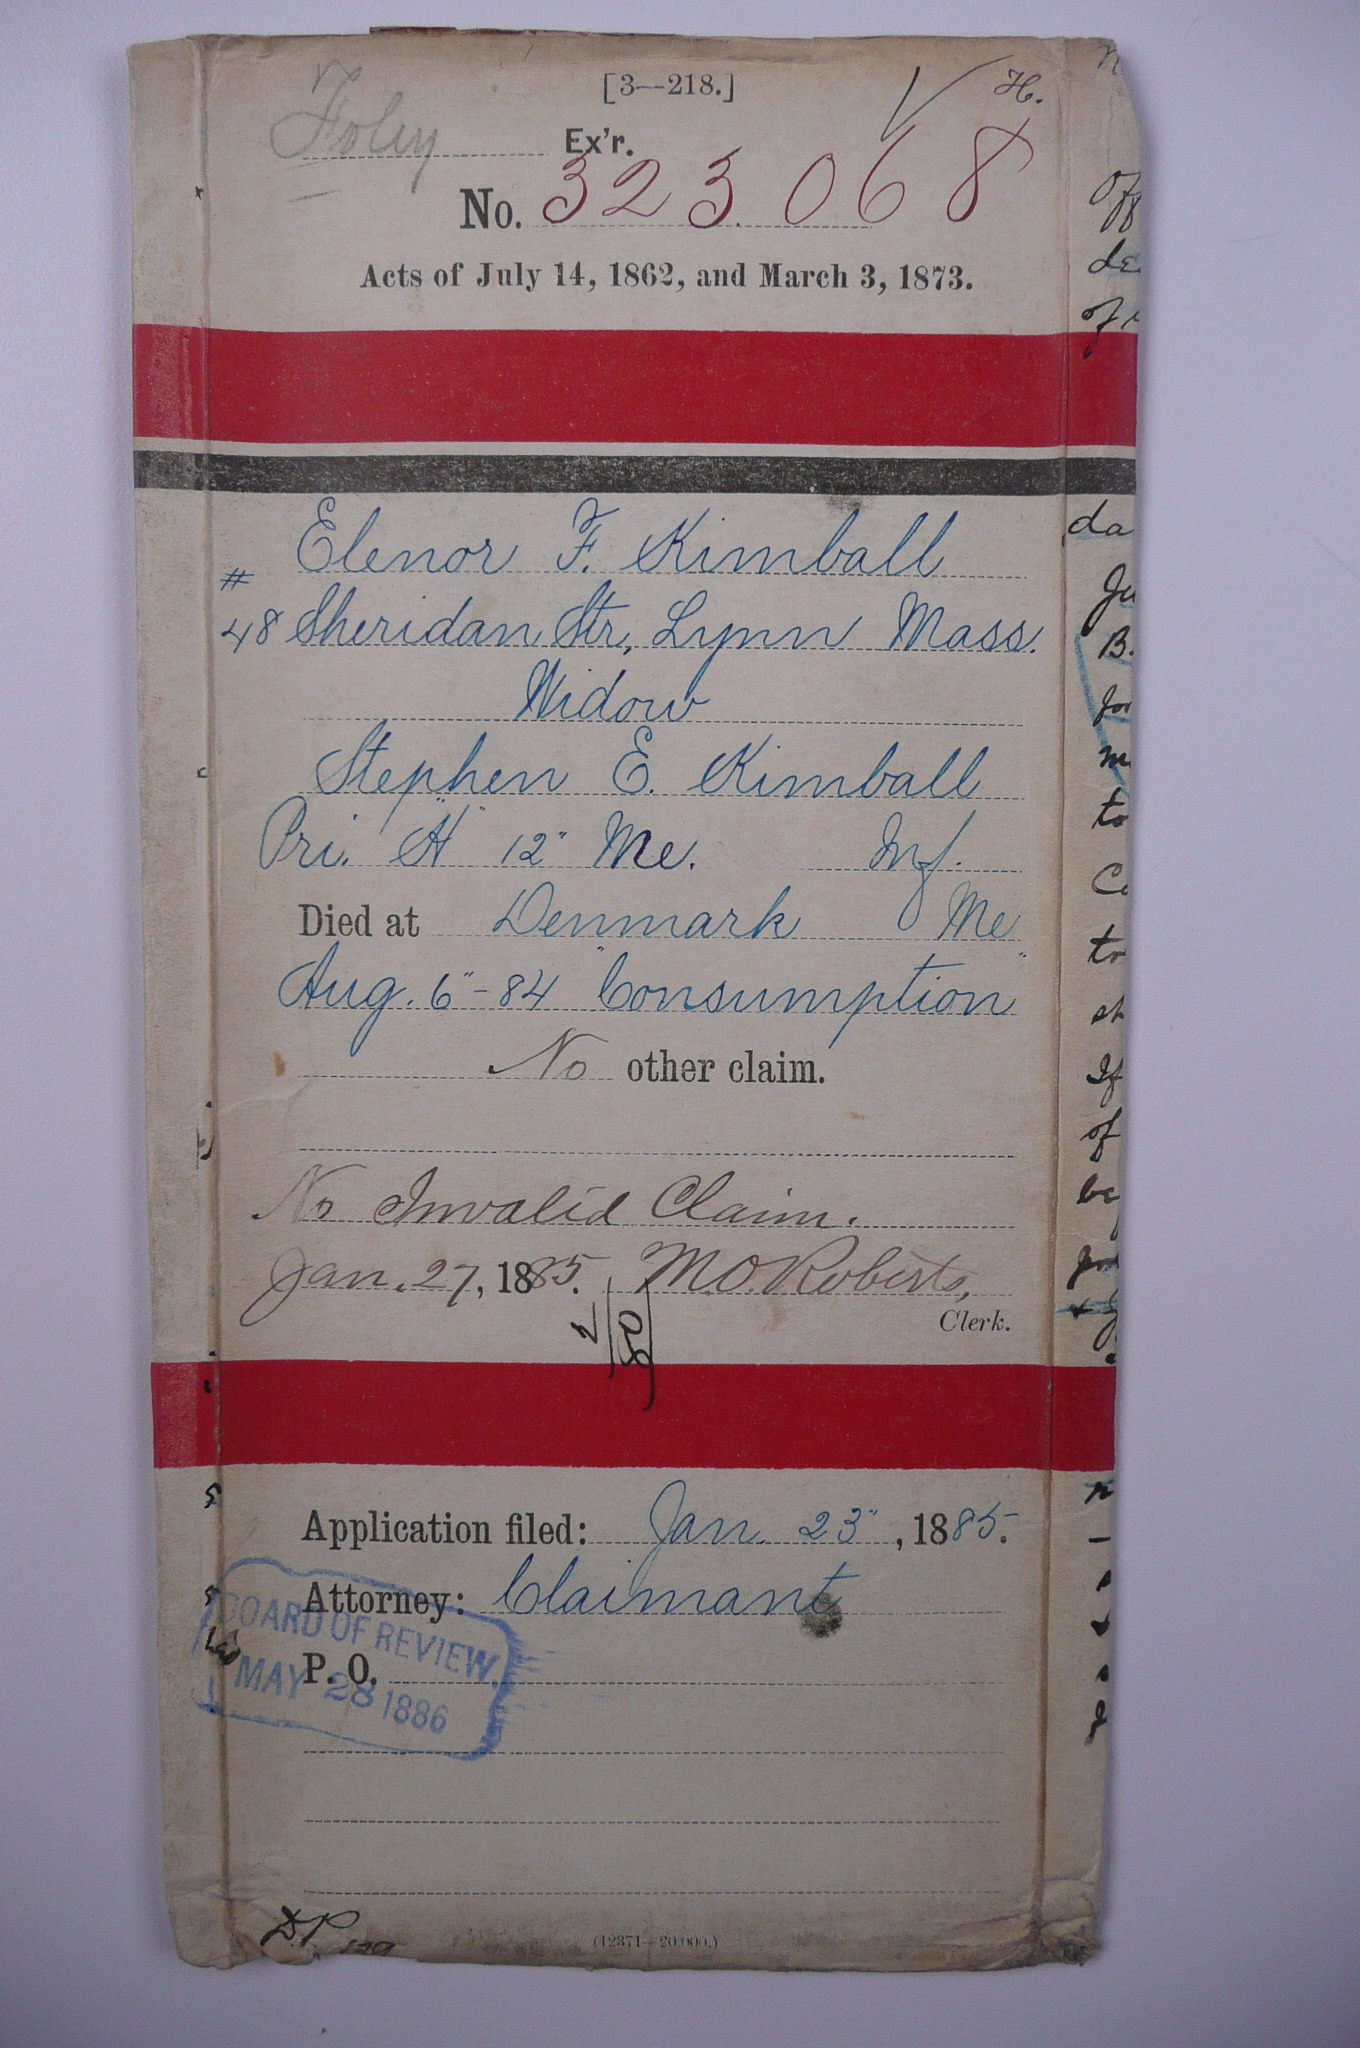 [3—218.]
H.
Foley Ex'r.
No. 323.068
Acts of July 14, 1862, and March 3, 1873.
Elenor F. Kimball
# 48 Sheridan Str, Lynn Mass.
Widow
Stephen E. Kimball
Pri. "H" 12" Me. Inf.
Died at Denmark Me
Aug. 6"-84 "Consumption"
No other claim.
No Invalid Claim.
Jan. 27, 1885. M.O. Roberts,
Clerk.
2
80
Application filed: Jan. 23", 1885.
Attorney: Claimant
BOARD OF REVIEW.
P. O.
MAY 28 1886
DP
(12371—20,000.)
da
B.
to
of